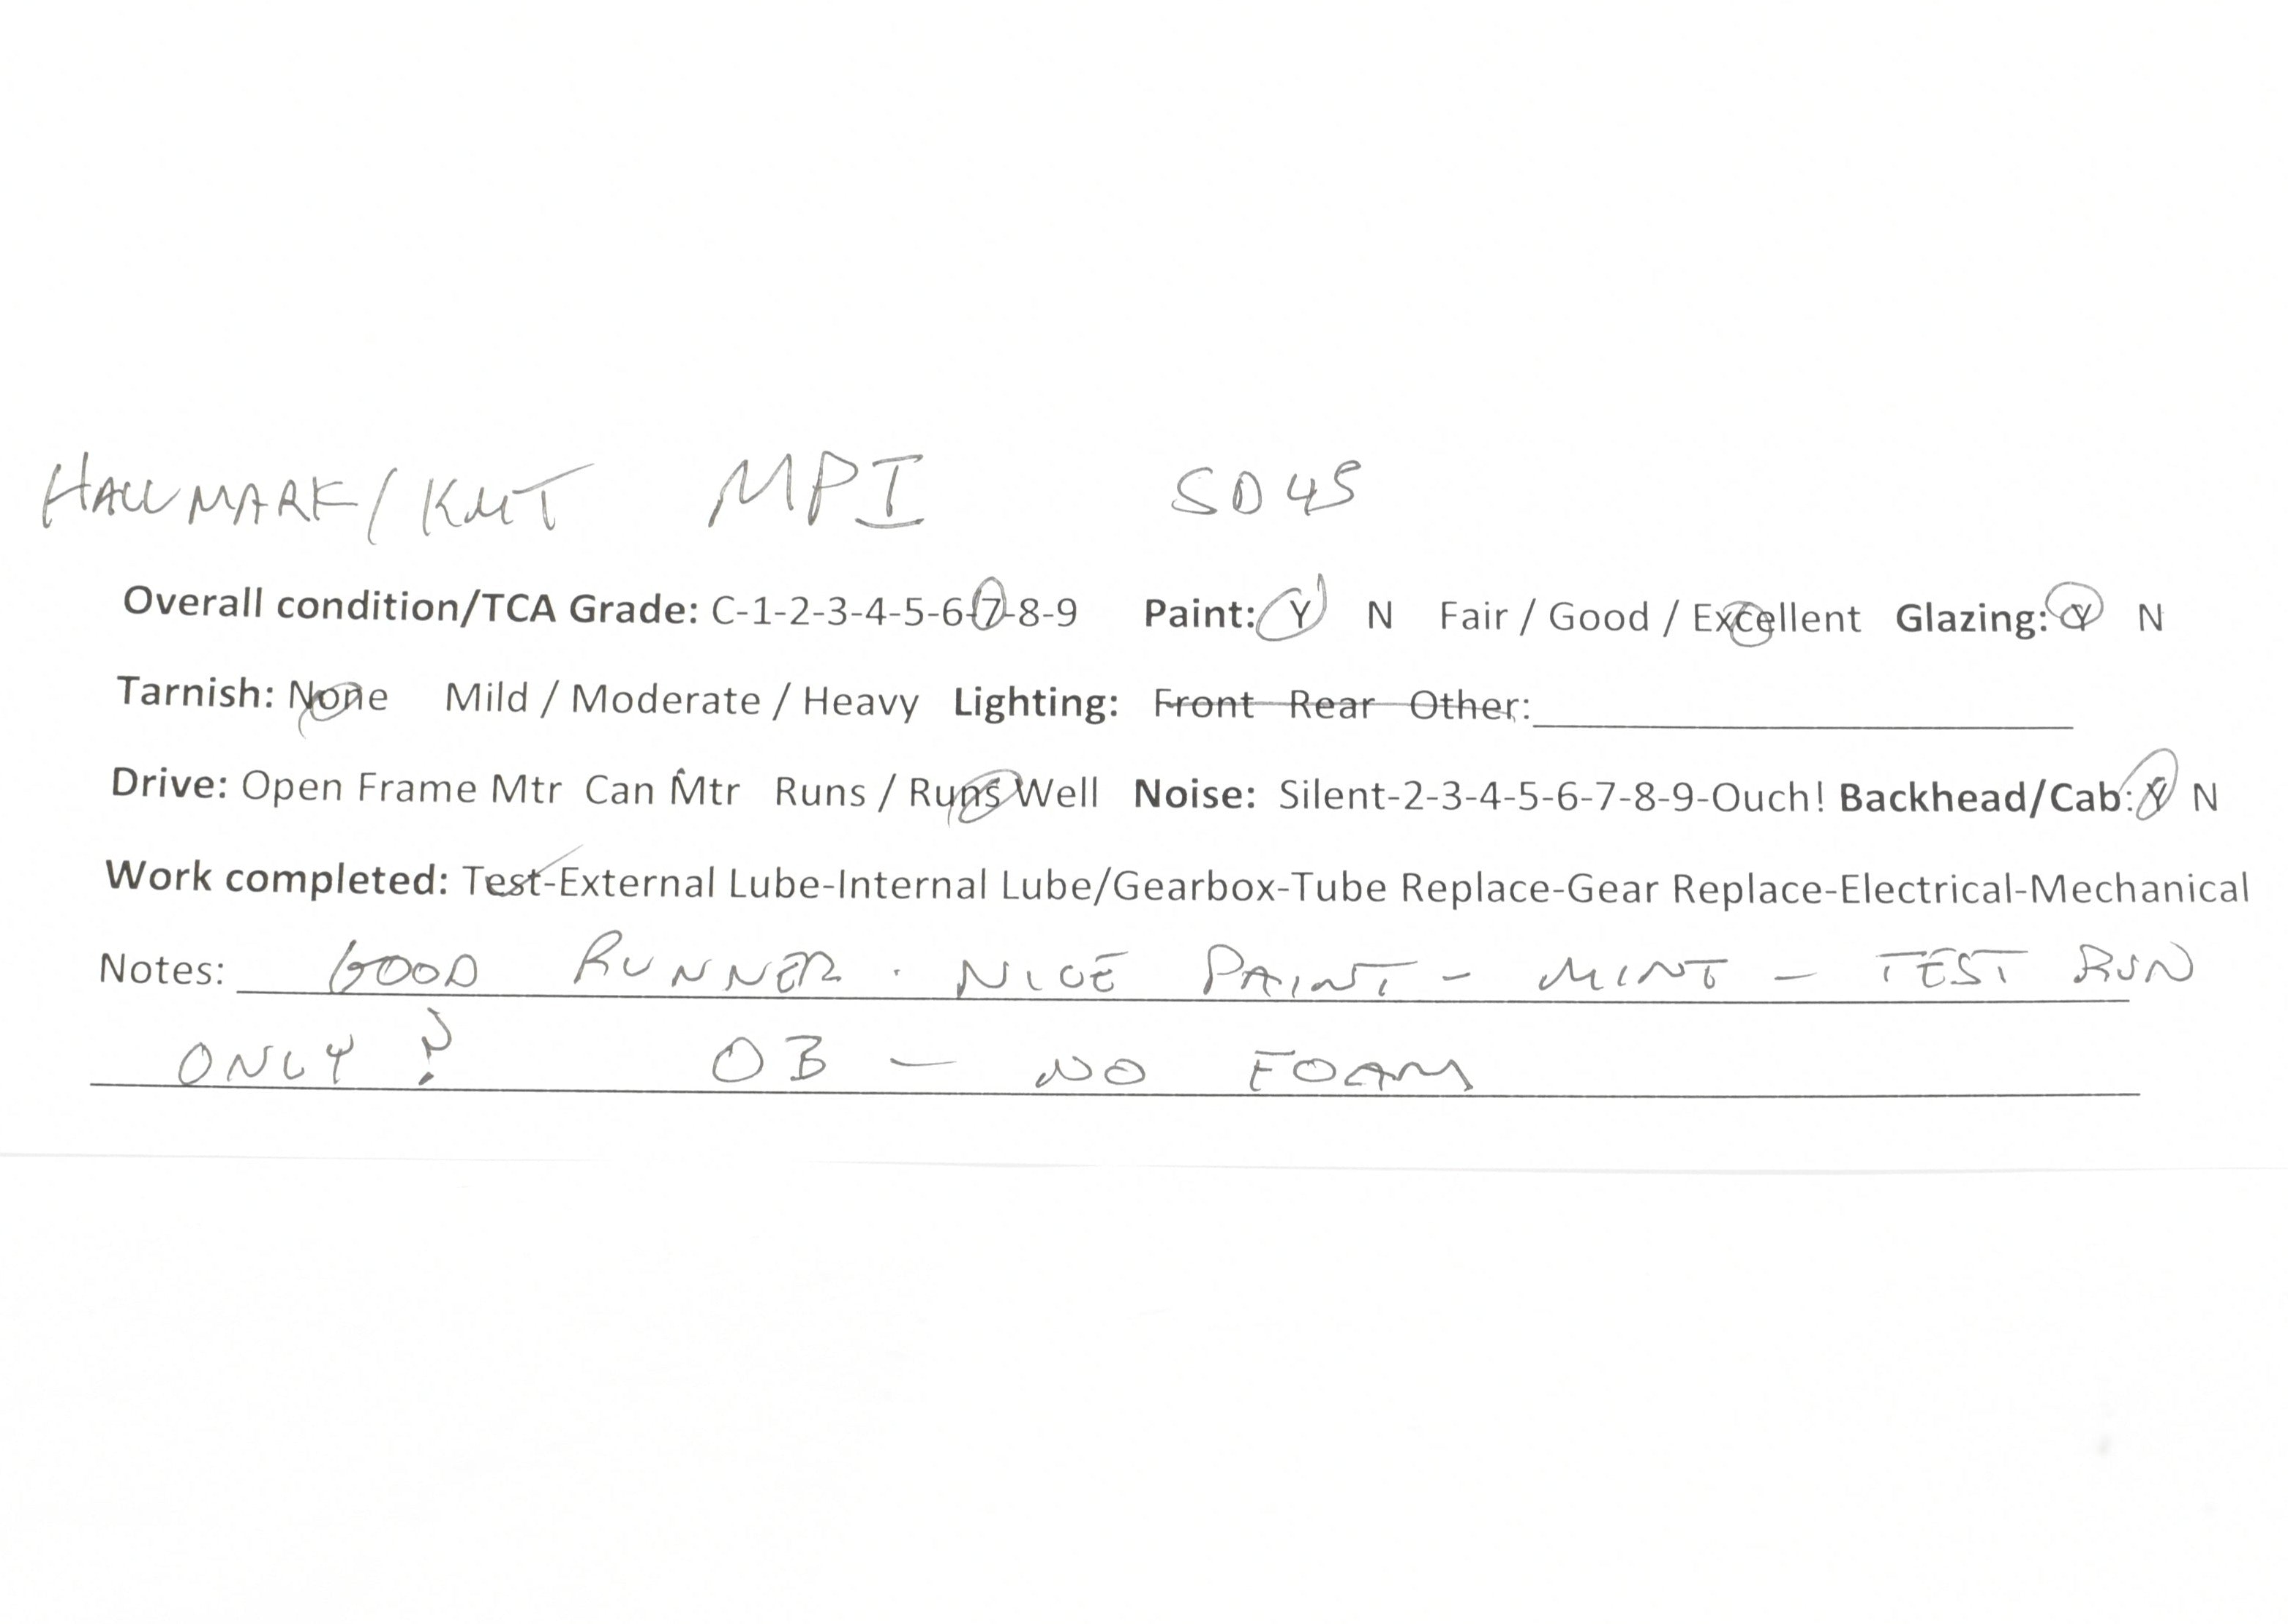 HALLMARK/KMT MPI SD45
Overall condition/TCA Grade: C-1-2-3-4-5-6-7-8-9 Paint: Y N Fair / Good / Excellent Glazing: Y N
Tarnish: None Mild / Moderate / Heavy Lighting: Front Rear Other:
Drive: Open Frame Mtr Can Mtr Runs / Runs Well Noise: Silent-2-3-4-5-6-7-8-9-Ouch! Backhead/Cab: Y N
Work completed: Test-External Lube-Internal Lube/Gearbox-Tube Replace-Gear Replace-Electrical-Mechanical
Notes: GOOD RUNNER. NICE PAINT - MINT - TEST RUN
ONLY? OB - NO FOAM